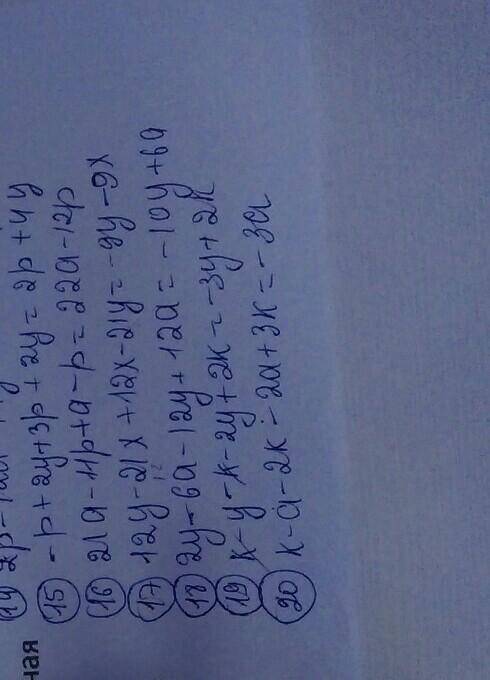 14 2p-
15 -p+2y+3p+2y=2p+4y
16 21a-11p+a-p=22a-12p
17 12y-21x+12x-21y=-9y-9x
18 2y-6a-12y+12a=-10y+6a
19 к-y-к-2y+2к=-3y+2к
20 к-a-2к-2a+3к=-3a
ная